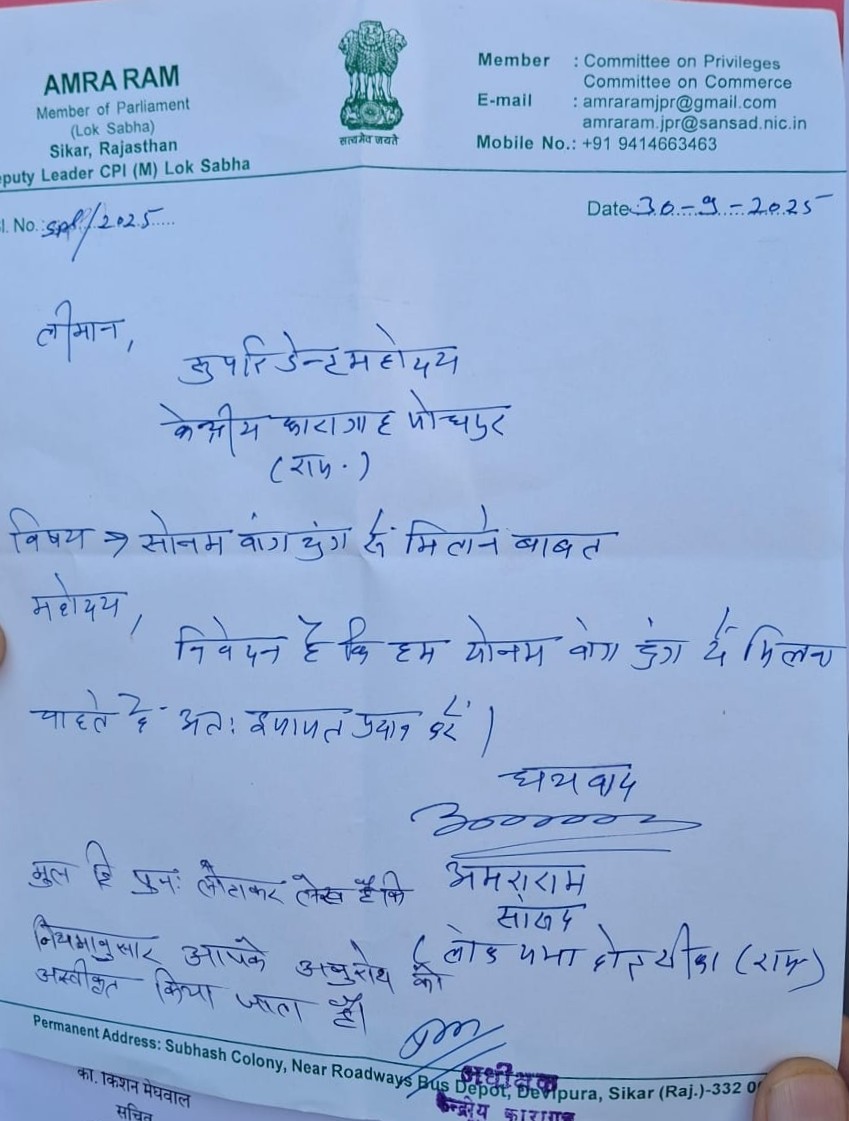 AMRA RAM
Member of Parliament
(Lok Sabha)
Sikar, Rajasthan
eputy Leader CPI (M) Lok Sabha
सत्यमेव जयते
Member : Committee on Privileges
Committee on Commerce
E-mail : amraramjpr@gmail.com
amraram.jpr@sansad.nic.in
Mobile No.: +91 9414663463
l. No.: spl/2025
Date 30-9-2025
श्रीमान,
सुपरिडेन्ट महोदय
केन्द्रीय कारागाह जोधपुर
(राज.)
विषय → सोनम वांग चुंग से मिलने बाबत
महोदय,
निवेदन है कि हम सोनम वांग चुंग से मिलना
चाहते है अतः इजाजत प्रदान करें।
धन्यवाद
अमराराम
सांसद
(लोक सभा क्षेत्र सीकर (राज)
मुल ही पुनः लौटाकर लेख है कि
नियमानुसार आपके अनुरोध को
अस्वीकृत किया जाता है।
Permanent Address: Subhash Colony, Near Roadways Bus Depot, Devipura, Sikar (Raj.)-332 0
अधीक्षक
केन्द्रीय कारागृह
का. किशन मेघवाल
सचिव